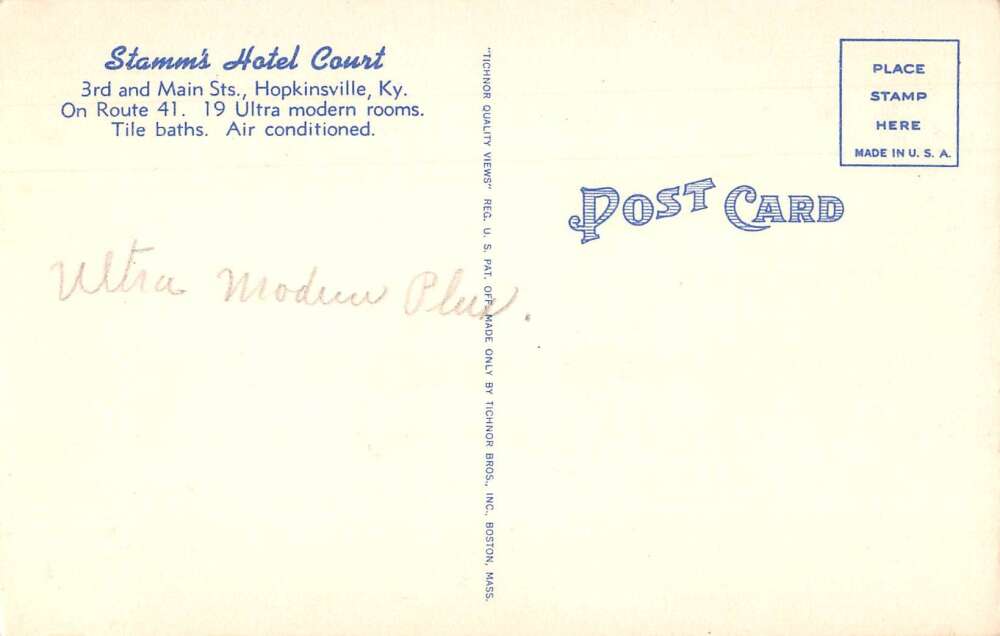 Stamm's Hotel Court
3rd and Main Sts., Hopkinsville, Ky.
On Route 41. 19 Ultra modern rooms.
Tile baths. Air conditioned.
Ultra Modern Plus.
"TICHNOR QUALITY VIEWS" REG. U. S. PAT. OFF. MADE ONLY BY TICHNOR BROS., INC., BOSTON, MASS.
POST CARD
PLACE
STAMP
HERE
MADE IN U. S. A.